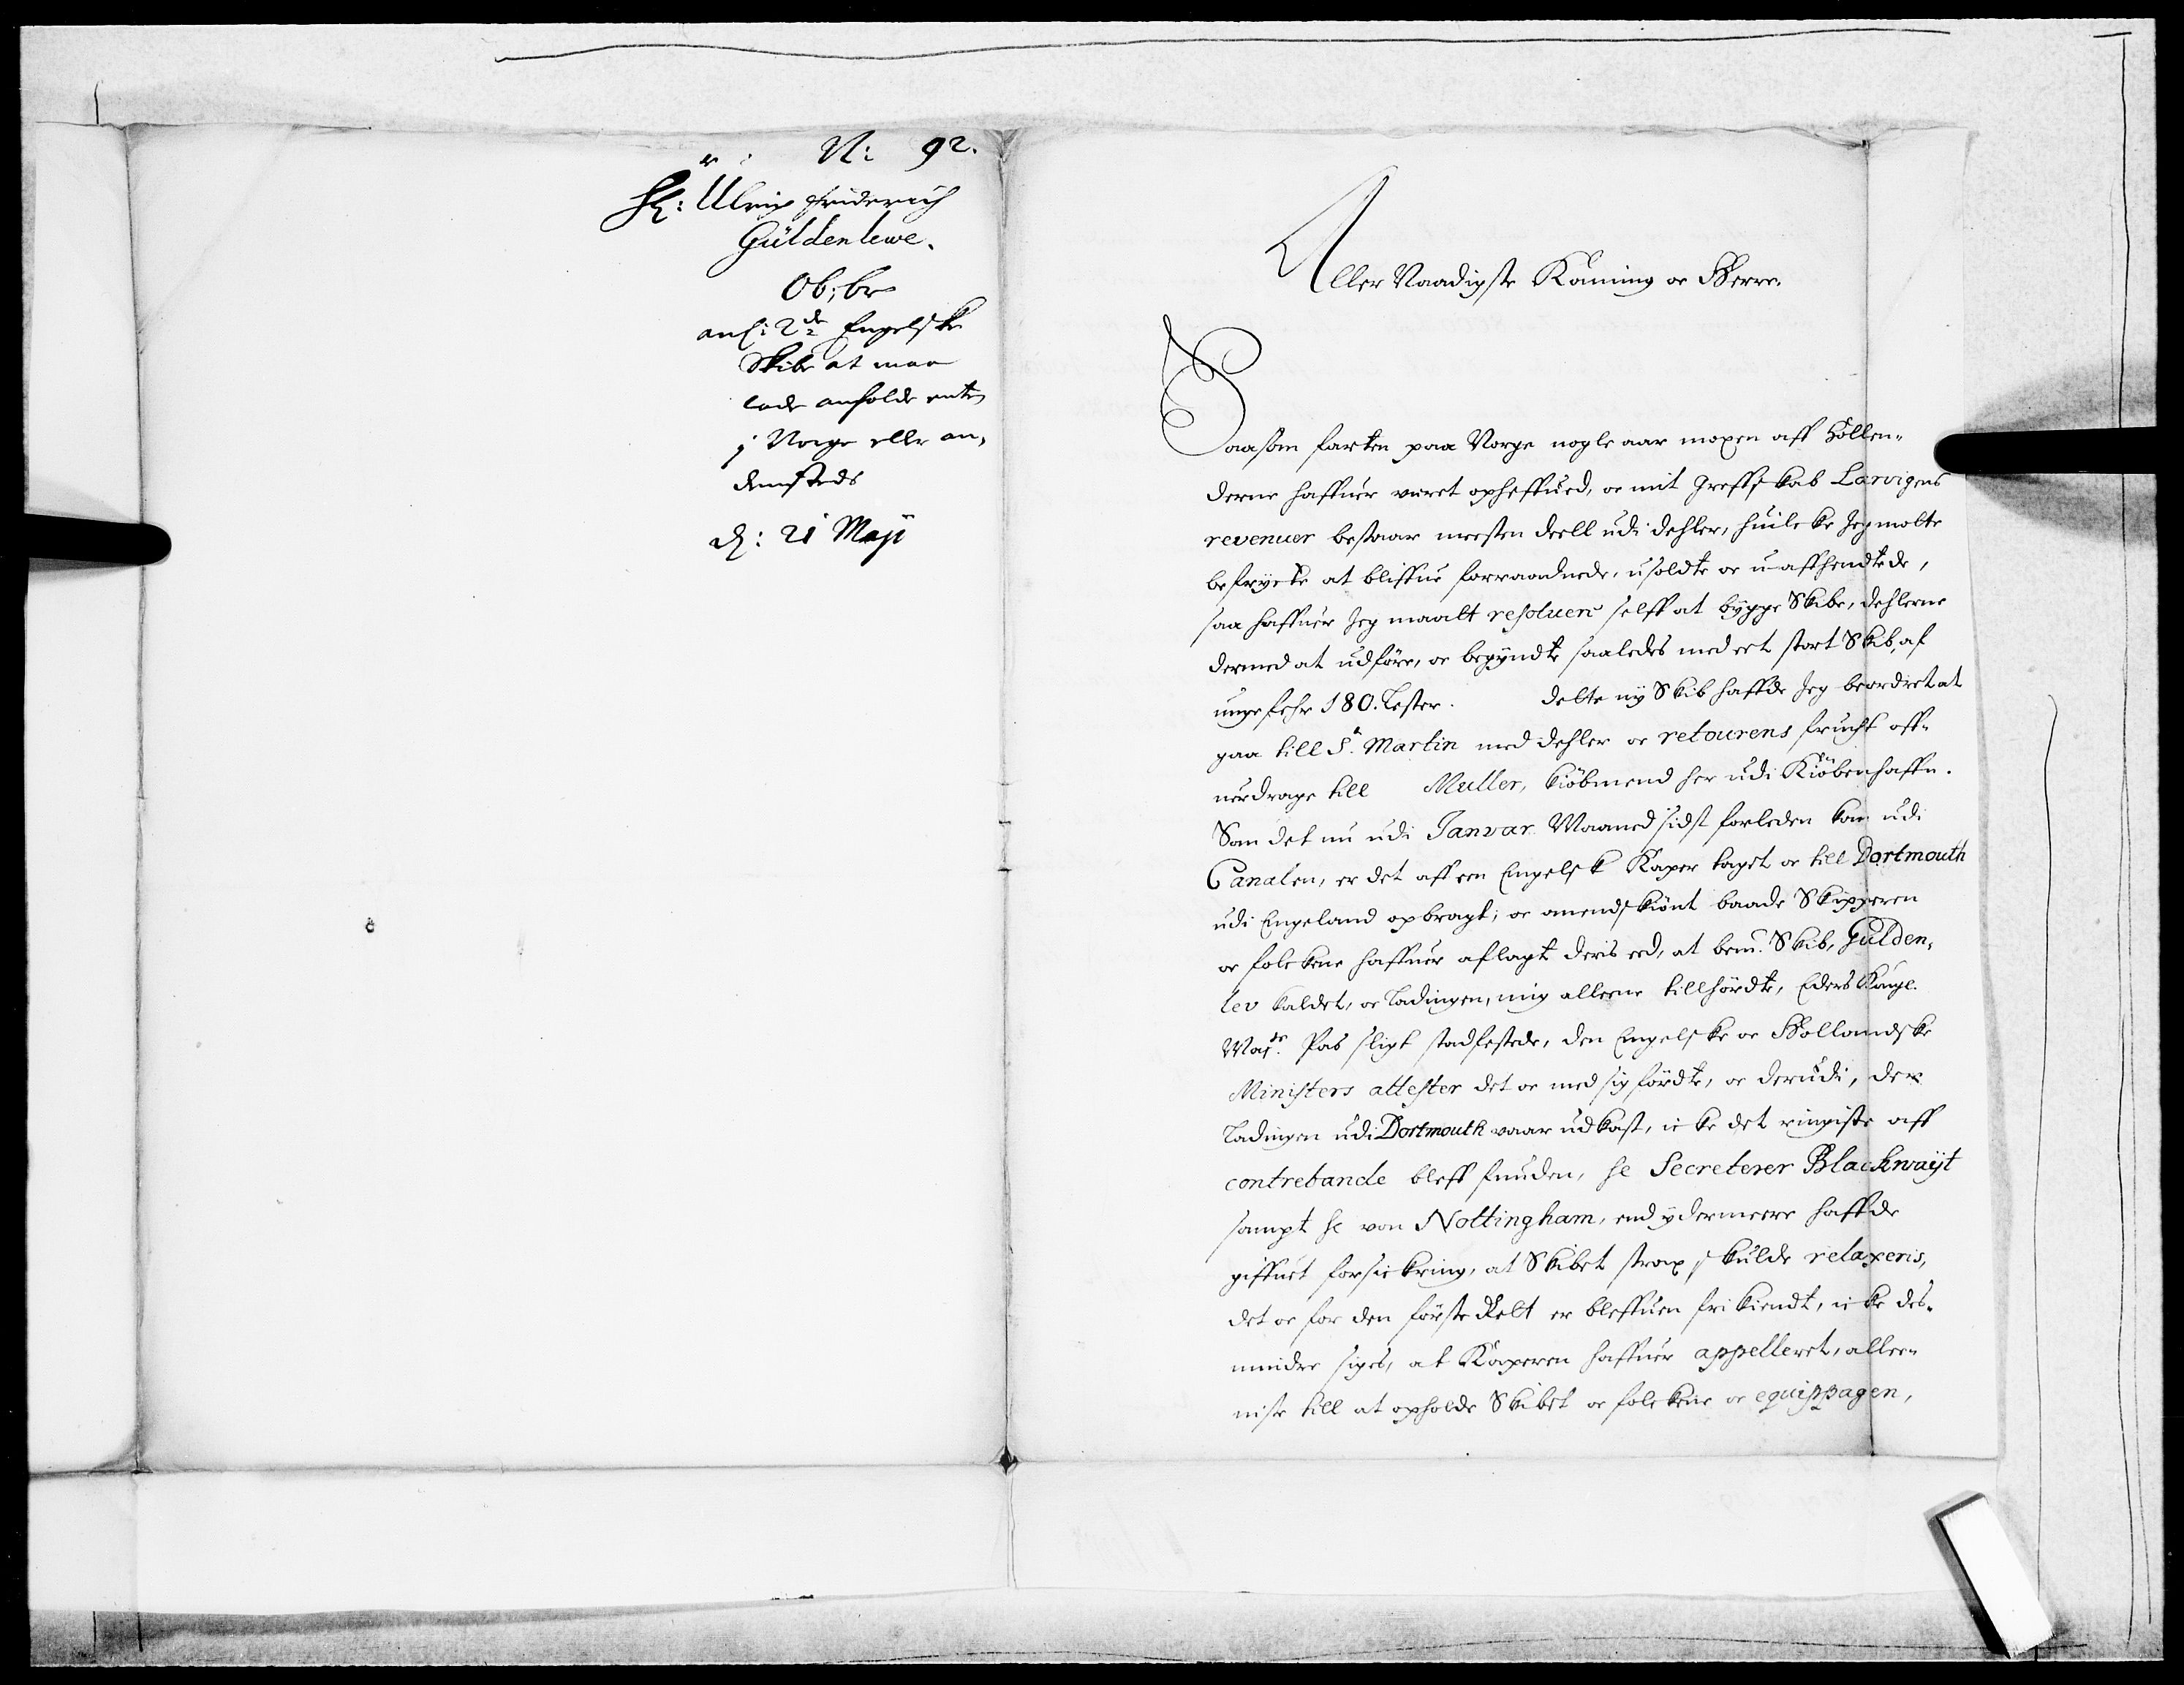 N: 92.
H: Ulrig friderich
Güldenlewe.
Ob: br
anl: 2de Engelske
Skibe at maa
lade anholde enten
i Norge eller an,
densteds
d: 21 Maji
Aller Naadigste Konning oc Herre.
Saasom farten paa Norge nogle aar maxen aff Hollen-
derne haffuer veret opheffued, oc mit Greffskab Larvigens
revenuer bestaar meesten deell udi dehler, huilcke Jeg motte
befrycte at bliffue forraadnede, usoldte oc u-affhendtede,
saa haffuer Jeg maatt resoluere selff at bygge Skibe, dehlerne
dermed at udföre, oc begyndte saaledes med eet stort Skib, af
ungefehr 180. Lester. dette ny Skib haffde Jeg beordret at
gaa till St. Martin med dehler oc retourens frucht off-
uerdrage till Muller, kiöbmend her udi Kiöbenhaffn.
Som det nu udi Janvar Maaned sidst forleden kom udi
Canalen, er det aff een Engelsk Kaper taget oc till Dortmouth
udi Engeland opbragt; oc anendskiönt baade Skipperen
oc folckene haffuer aflagt deris eed, at bem. Skib, Gulden,
lev kaldet, oc Ladingen, mig alleene tillhördte, Eders Kongl.
Mayts. Pas sligt stadfestede, den Engelske oc Hollandske
Ministers attester det oc med sig fördte, oc derudi, der
Ladingen udi Dortmouth vaar udkast, icke det ringiste aff
contrebande bleff funden, he Secreterer Blackwayt
sampt he von Nottingham, end ydermeere haffde
giffuet forsickring, at Skibet strax skulde relaxeris,
det oc for den förste Rett er bleffuen frikiendt, icke des-
mindre siges, at Kaperen haffuer appelleret, allee-
niste till at opholde Skibet oc folckene oc equippagen,